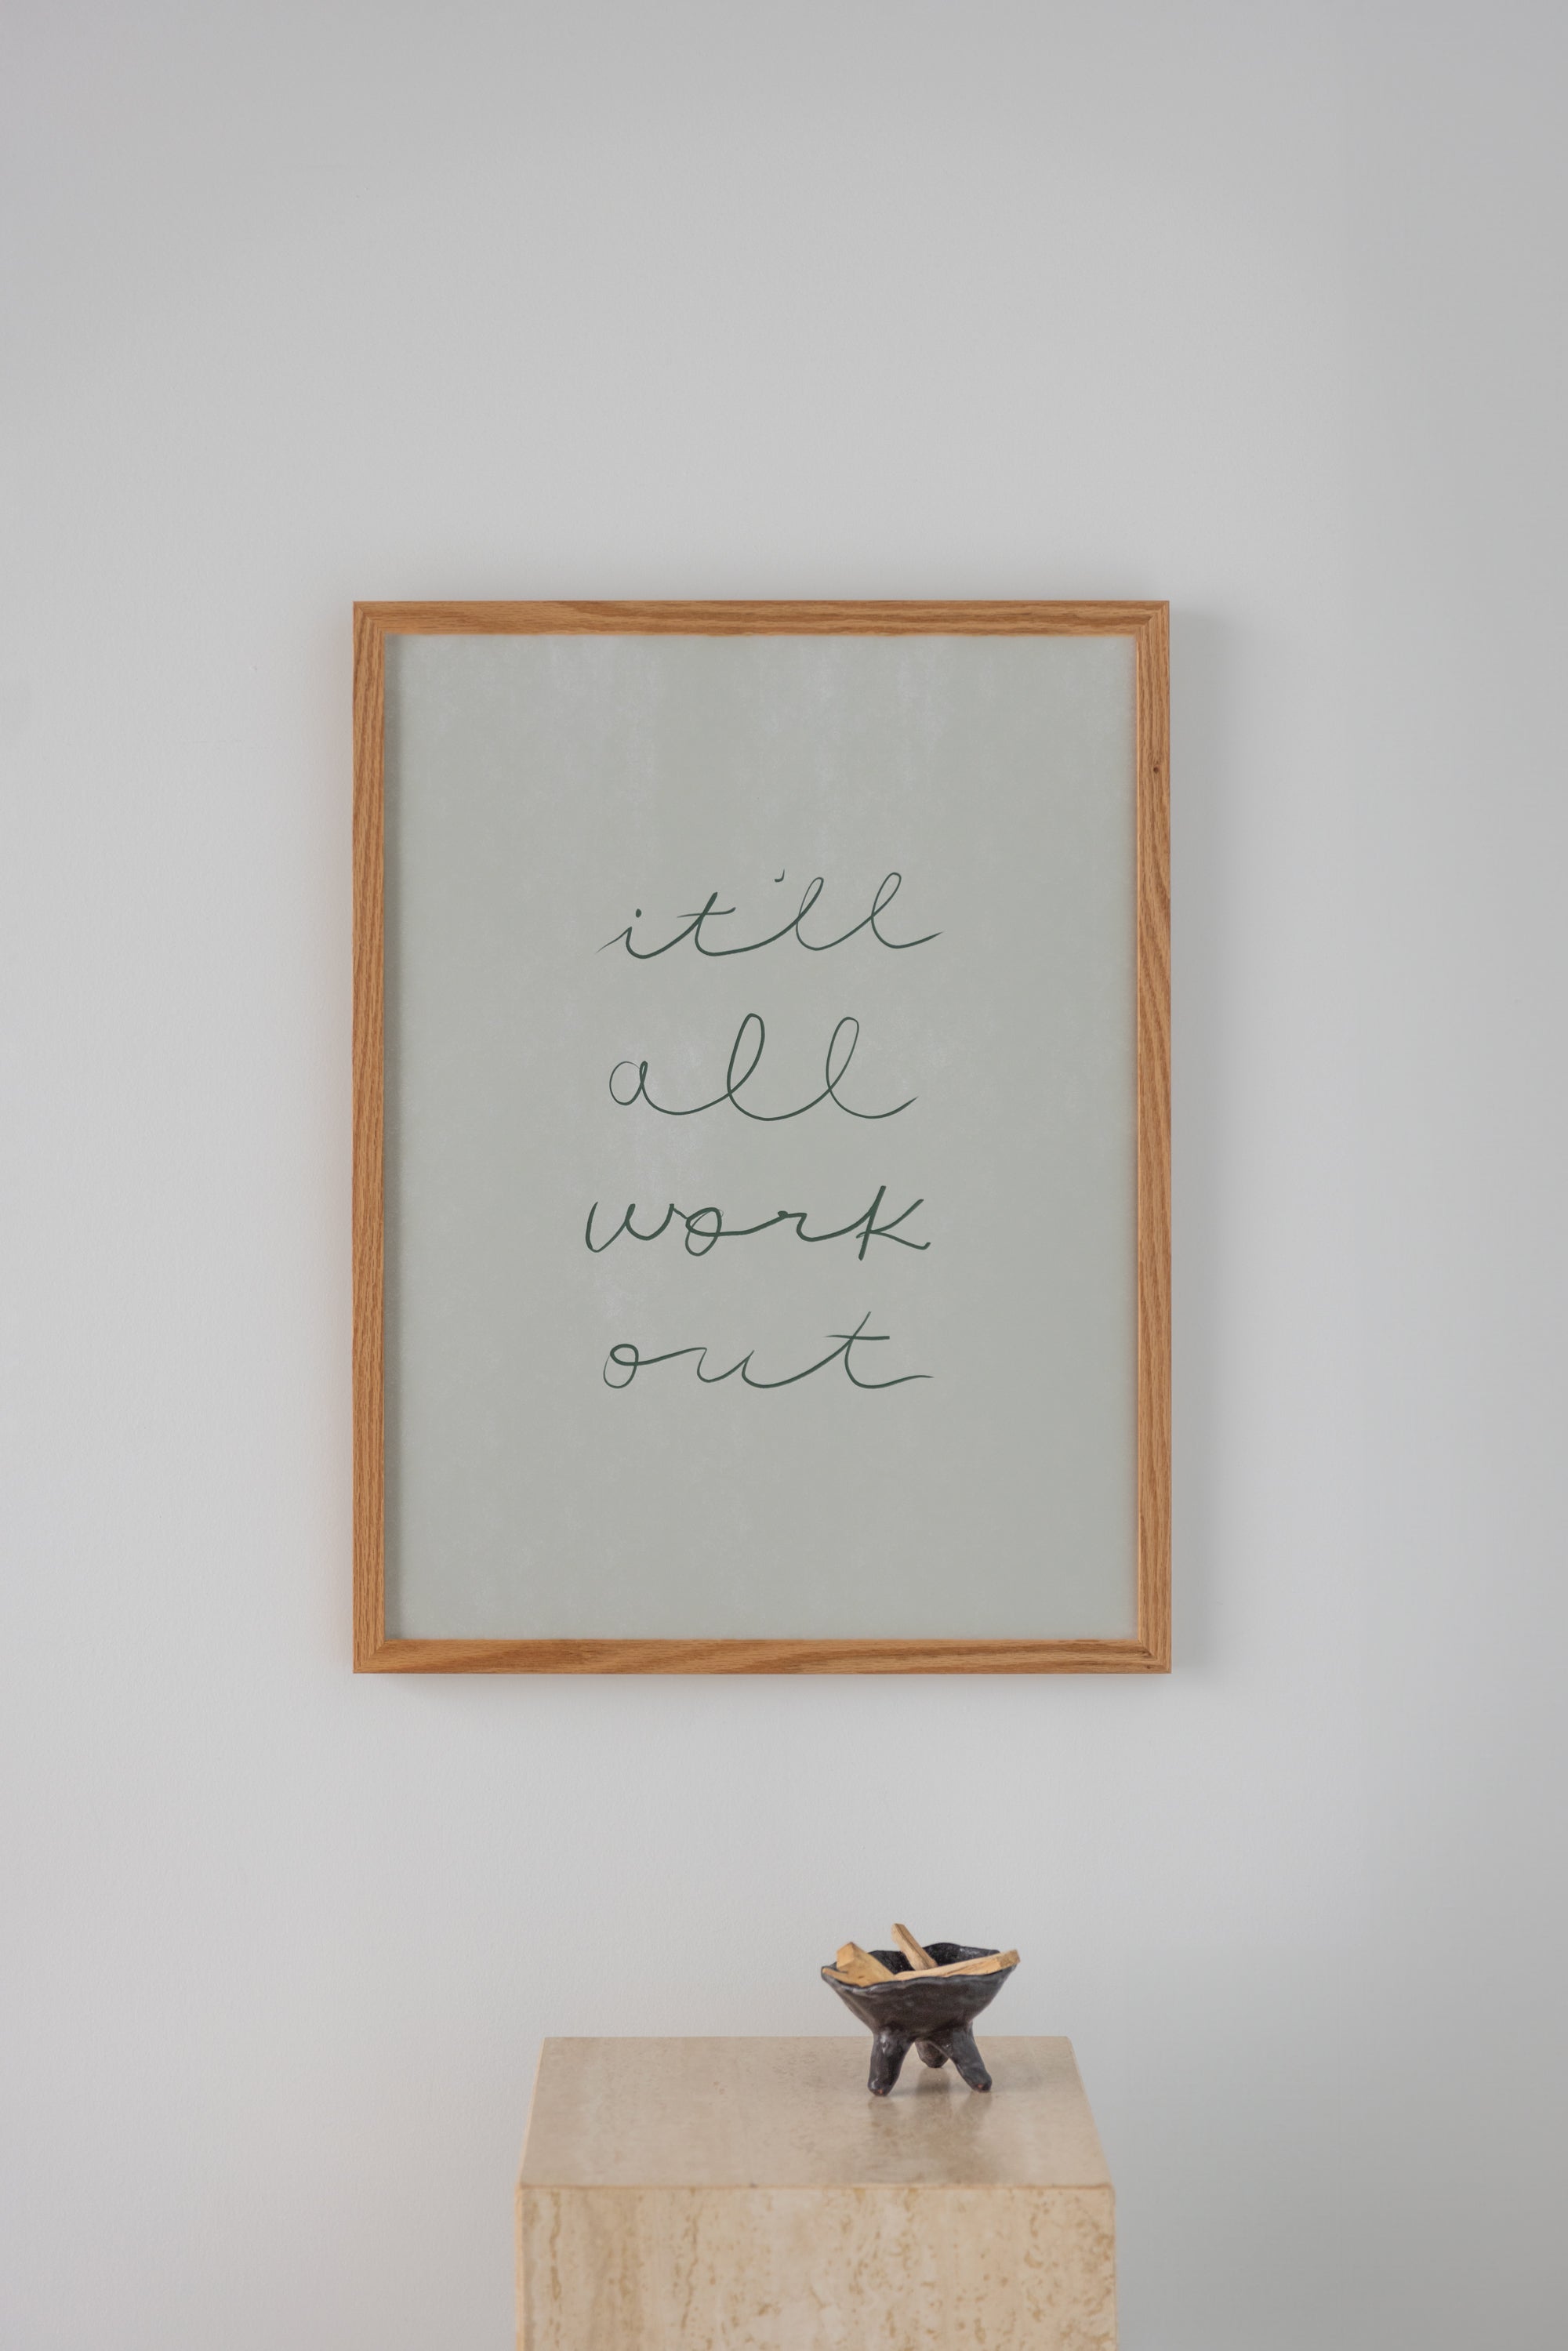 it'll
all
work
out